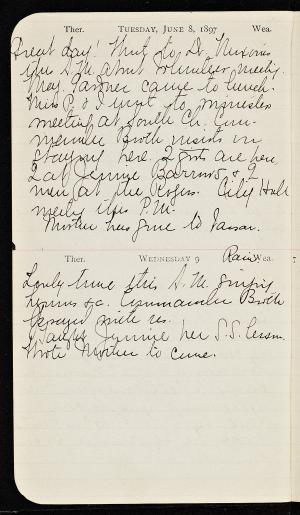 Ther. TUESDAY, JUNE 8, 1897 Wea.
Great day! Went to Dr. Nixon's
this A.M. about volunteer meeting.
May Gardner came to lunch.
Miss P. & I went to ministers
meeting at South Ch. Com-
mander Booth insists on
staying here. 2 girls are here
2 at Jennie Barrows, & 2
men at the Rogers. City Hall
meeting this P.M.
Mother has gone to Vassar.
Ther. WEDNESDAY 9 Rain Wea.
Lovely time this A.M. singing
hymns &c. Commander Booth
prayed with us.
Taught Jennie her S.S. lesson.
Wrote Mother to come.